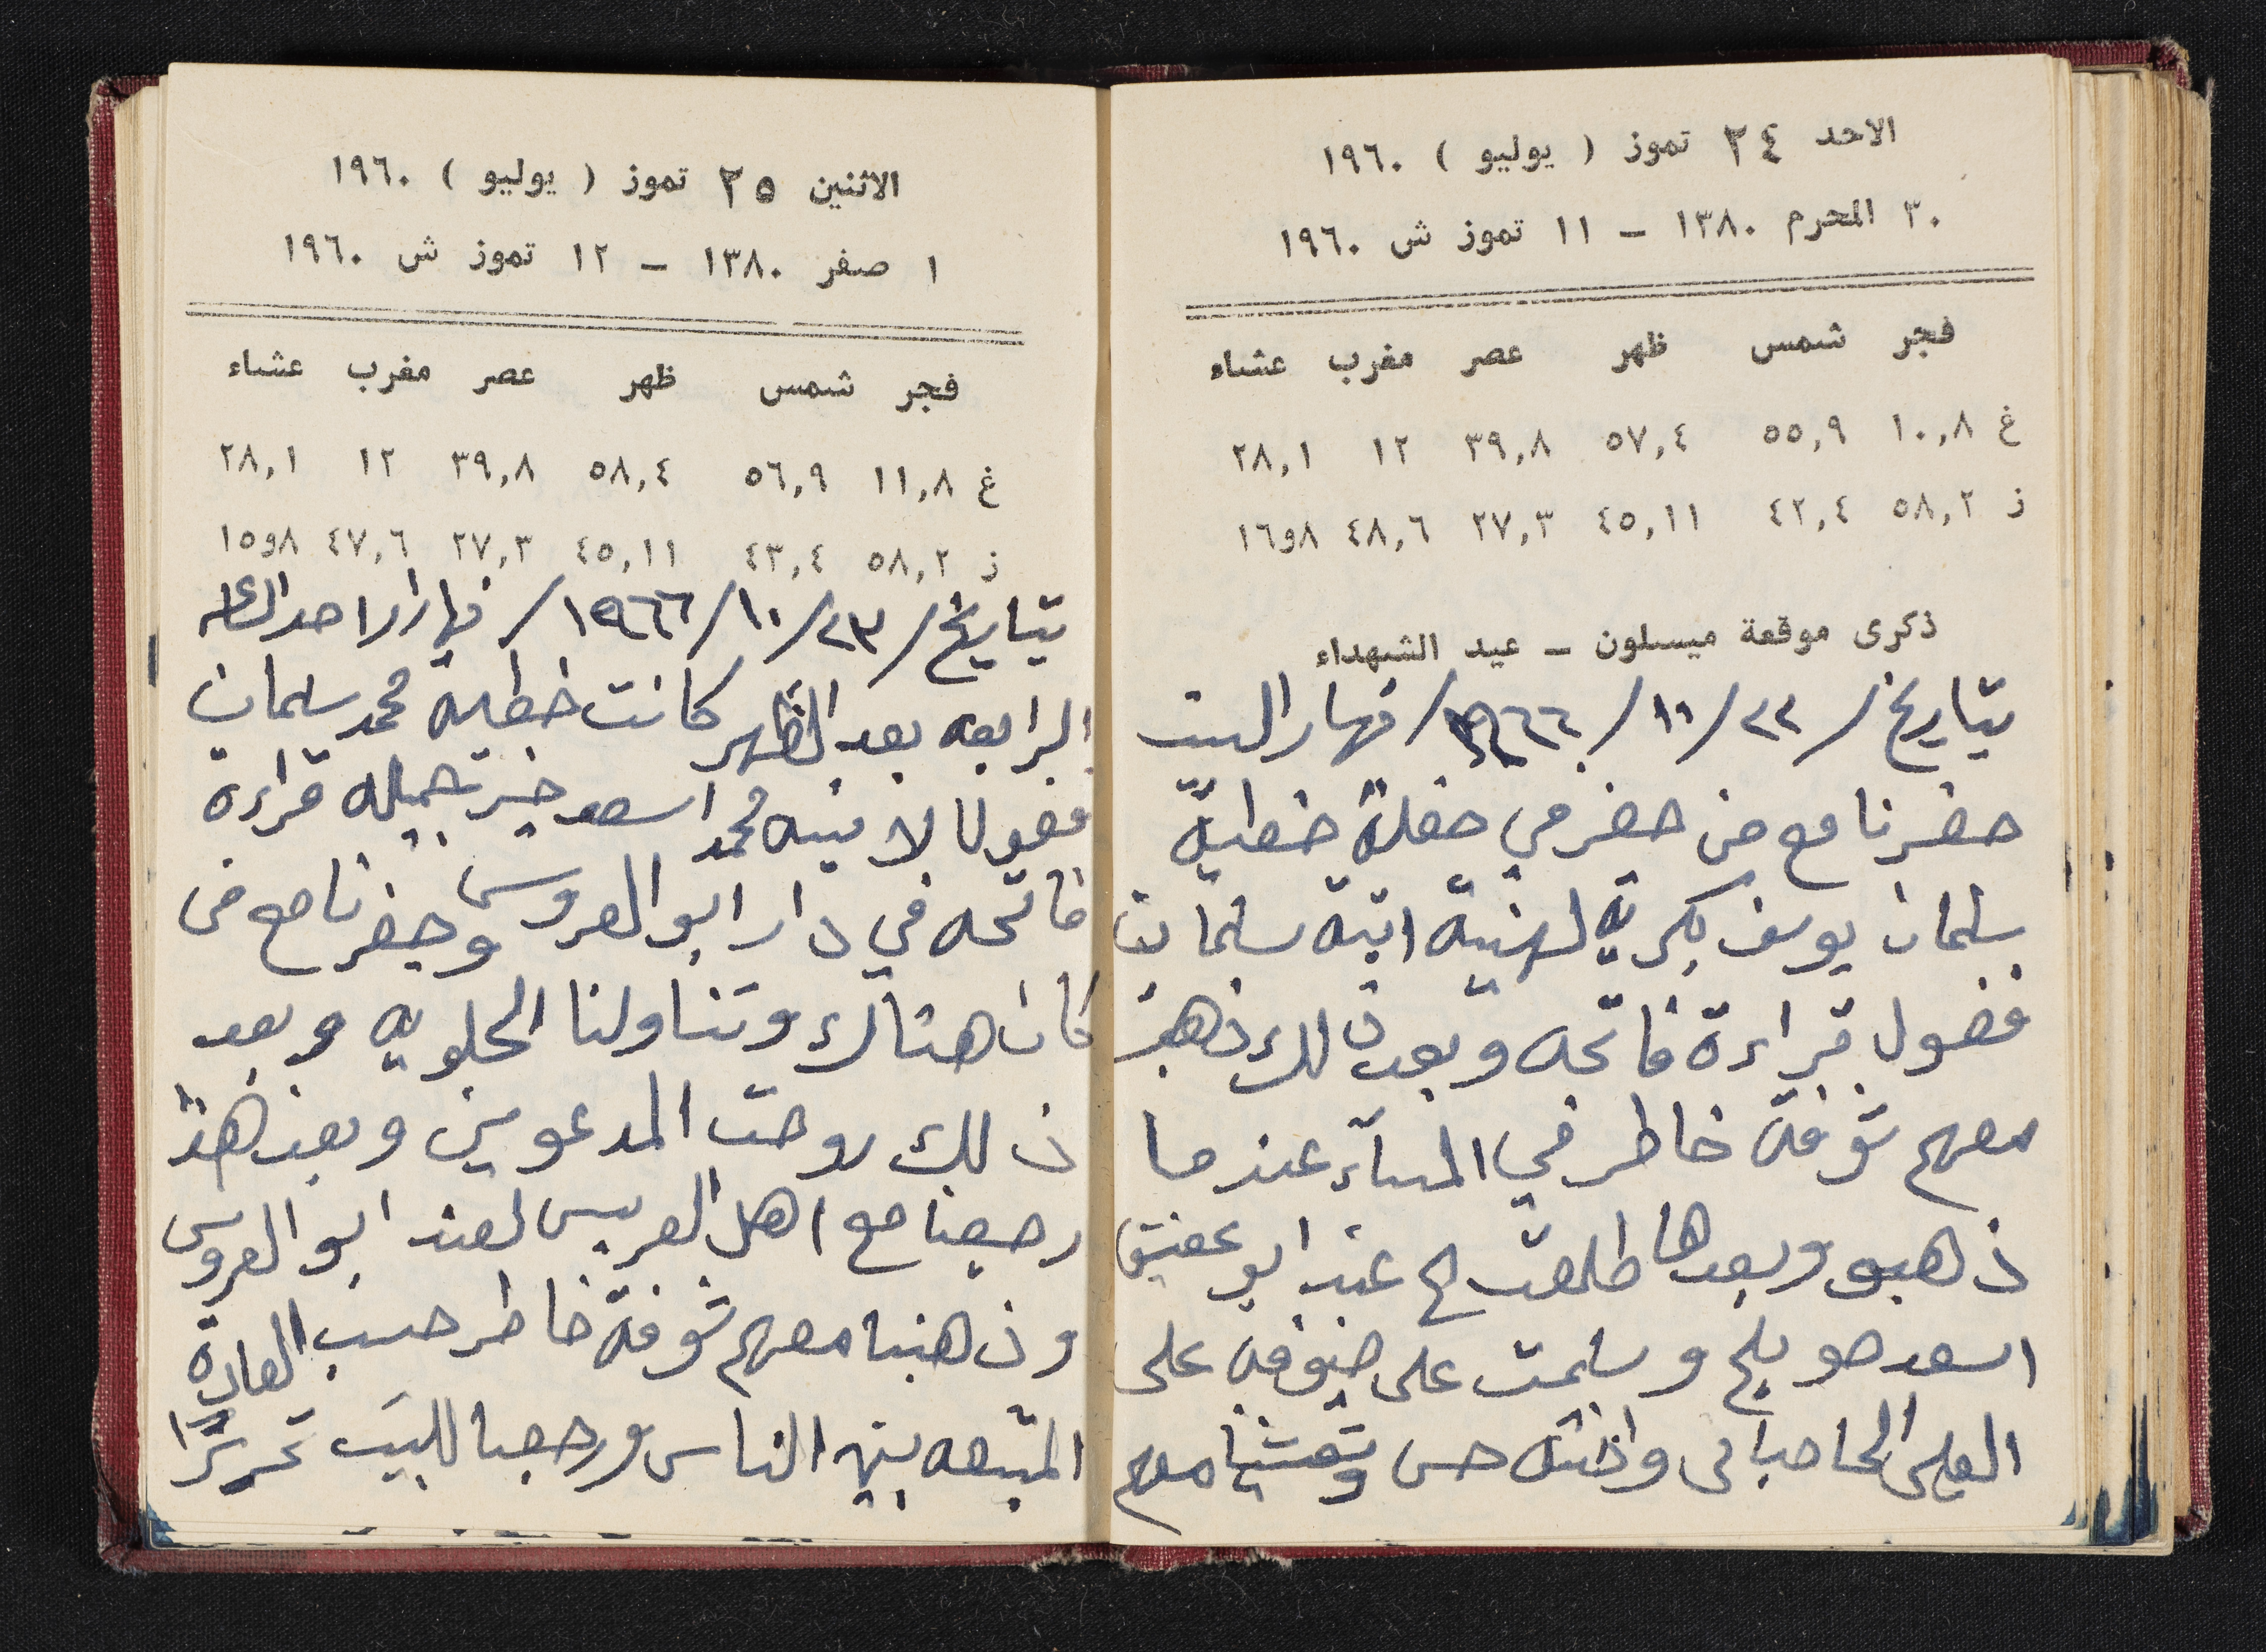 الاحد ٢٤ تموز ( يوليو ) ١٩٦٠
٣٠ المحرم ١٣٨٠ - ١١ تموز ش ١٩٦٠
فجر شمس ظهر عصر مغرب عشاء
غ ١٠,٨ ٥٥,٩ ٥٧,٤ ٣٩,٨ ١٢ ٢٨,١
ز ٥٨,٢ ٤٢,٤ ٤٥,١١ ٢٧,٣ ٤٨,٦ ٨و١٦
ذكرى موقعة ميسلون - عيد الشهداء
بتاريخ / ٢٢ / ١٠ / ١٩٦٦ / نهار السبت
حضرنا مع من حضر في حفلة خطبة
سلمان يوسف بكرية لهنية ابنة سلمان
فضول قراءة فاتحه وبعد ذلك ذهبة
معهم شوفة خاطر في المساء عندما
ذهبو وبعدها طلعت الى عند ابو عفيق
اسعد صويلح وسلمت على ضيوفه على
العلي الحاصباني واختك حسن وتعشينا معهم
الاثنين ٢٥ تموز ( يوليو ) ١٩٦٠
١ صفر ١٣٨٠ - ١٢ تموز ش ١٩٦٠
فجر شمس ظهر عصر مغرب عشاء
غ ١١,٨ ٥٦,٩ ٥٨,٤ ٣٩,٨ ١٢ ٢٨,١
ز ٥٨,٢ ٤٣,٤ ٤٥,١١ ٢٧,٣ ٤٧,٦ ٨و١٥
بتاريخ / ٢٣ / ١٠ / ١٩٦٦ / نهار الاحد الساعه
الرابعه بعد الظهر كانت خطبة محمد سلمان
فضول لامنيه محمد اسعد خير جميله قراءة
فاتحه في دار ابو العروس وحضرنا مع من
كان هناك وتناولنا الحلويه وبعد
ذلك روحت المدعوين وبعد هذا
رجعنا مع اهل العريس لعند ابو العروس
وذهبنا معهم شوفة خاطر حسب العادة
المتبعه بين الناس ورجعنا للبيت تحريرًا